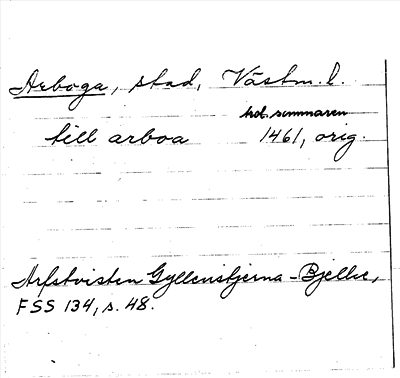 Arboga, stad, Västm. l.
hod. summaren
till arboa 1461, orig.
Arfstvisten Gyllenstjerna - Bjelke,
FSS 134, s. 48.